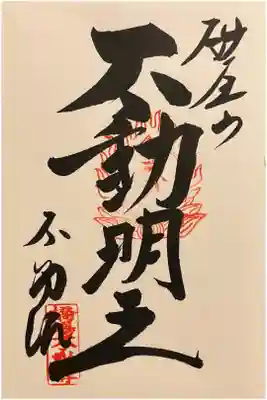 砂尾の
不動明王
不動院